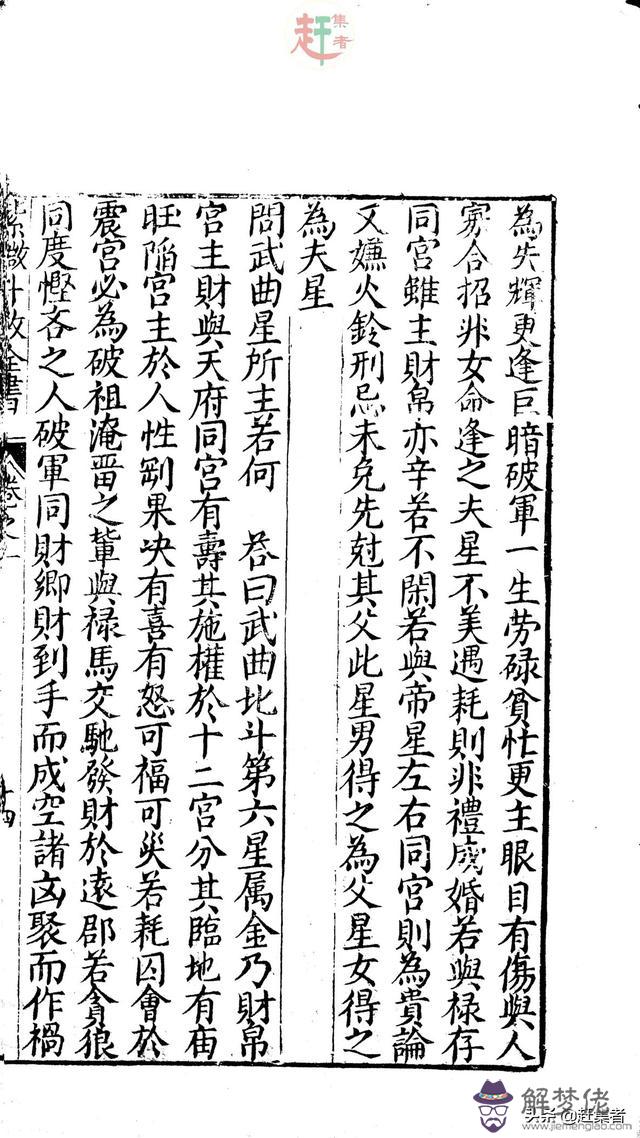 赶集者
為失輝更逢巨暗破軍一生勞碌貧忙更主眼目有傷與人
寡合招非女命逢之夫星不美遇耗則非禮成婚若與祿存
同宮雖主財帛亦辛若不閑若與帝星左右同宮則為貴論
又嫌火鈴刑忌未免先尅其父此星男得之為父星女得之
為夫星
問武曲星所主若何 答曰武曲北斗第六星属金乃財帛
宮主財與天府同宮有壽其施權於十二宮分其臨地有庙
旺陷宮主於人性剛果决有喜有怒可福可災若耗囚會於
震宮必為破祖淹畱之輩與禄馬交馳發財於遠郡若貪狼
同度慳吝之人破軍同財鄉財到手而成空諸凶聚而作禍
紫微斗数全書 卷之一
十四
解梦佬
www.jiemenglao.com
头条@赶集者